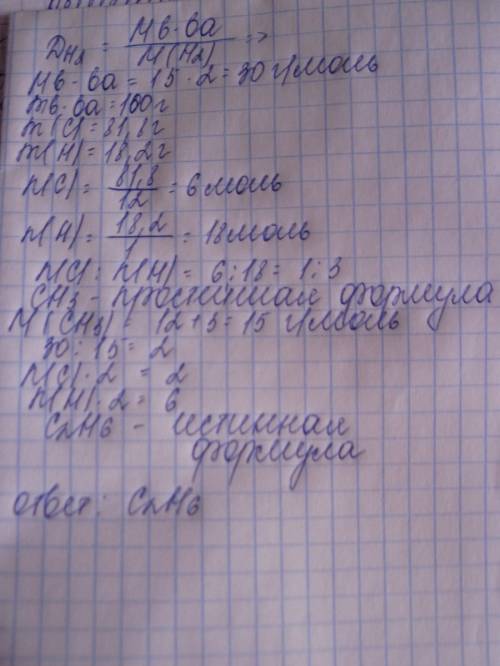 Dн₂ = Mв-ва / M(H₂) =>
Mв-ва = 15 · 2 = 30 г/моль
mв-ва = 100г
m(C) = 81,8г
m(H) = 18,2г
n(C) = 81,8 / 12 = 6 моль
n(H) = 18,2 / 1 = 18 моль
n(C) : n(H) = 6 : 18 = 1 : 3
CH₃ - формула
M(CH₃) = 12 + 3 = 15 г/моль
30 : 15 = 2
n(C) · 2 = 2
n(H) · 2 = 6
C₂H₆ - истинная
формула
ответ: C₂H₆